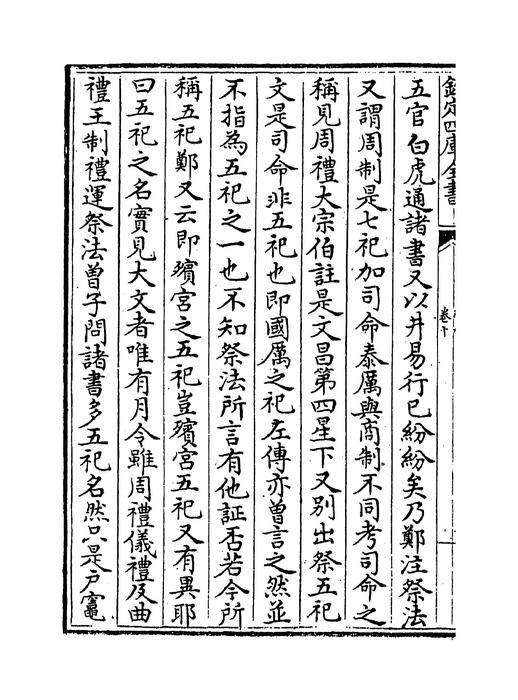 欽定四庫全書
卷十
五官白虎通諸書又以井易行已紛紛矣乃鄭注祭法
又謂周制是七祀加司命泰厲與商制不同考司命之
稱見周禮大宗伯註是文昌第四星下又別出祭五祀
文是司命非五祀也即國厲之祀左傳亦曽言之然並
不指為五祀之一也不知祭法所言有他証否若今所
稱五祀鄭又云即殯宮之五祀豈殯宮五祀又有異耶
曰五祀之名實見大文者唯有月令雖周禮儀禮及曲
禮王制禮運祭法曽子問諸書多五祀名然只是戸竈